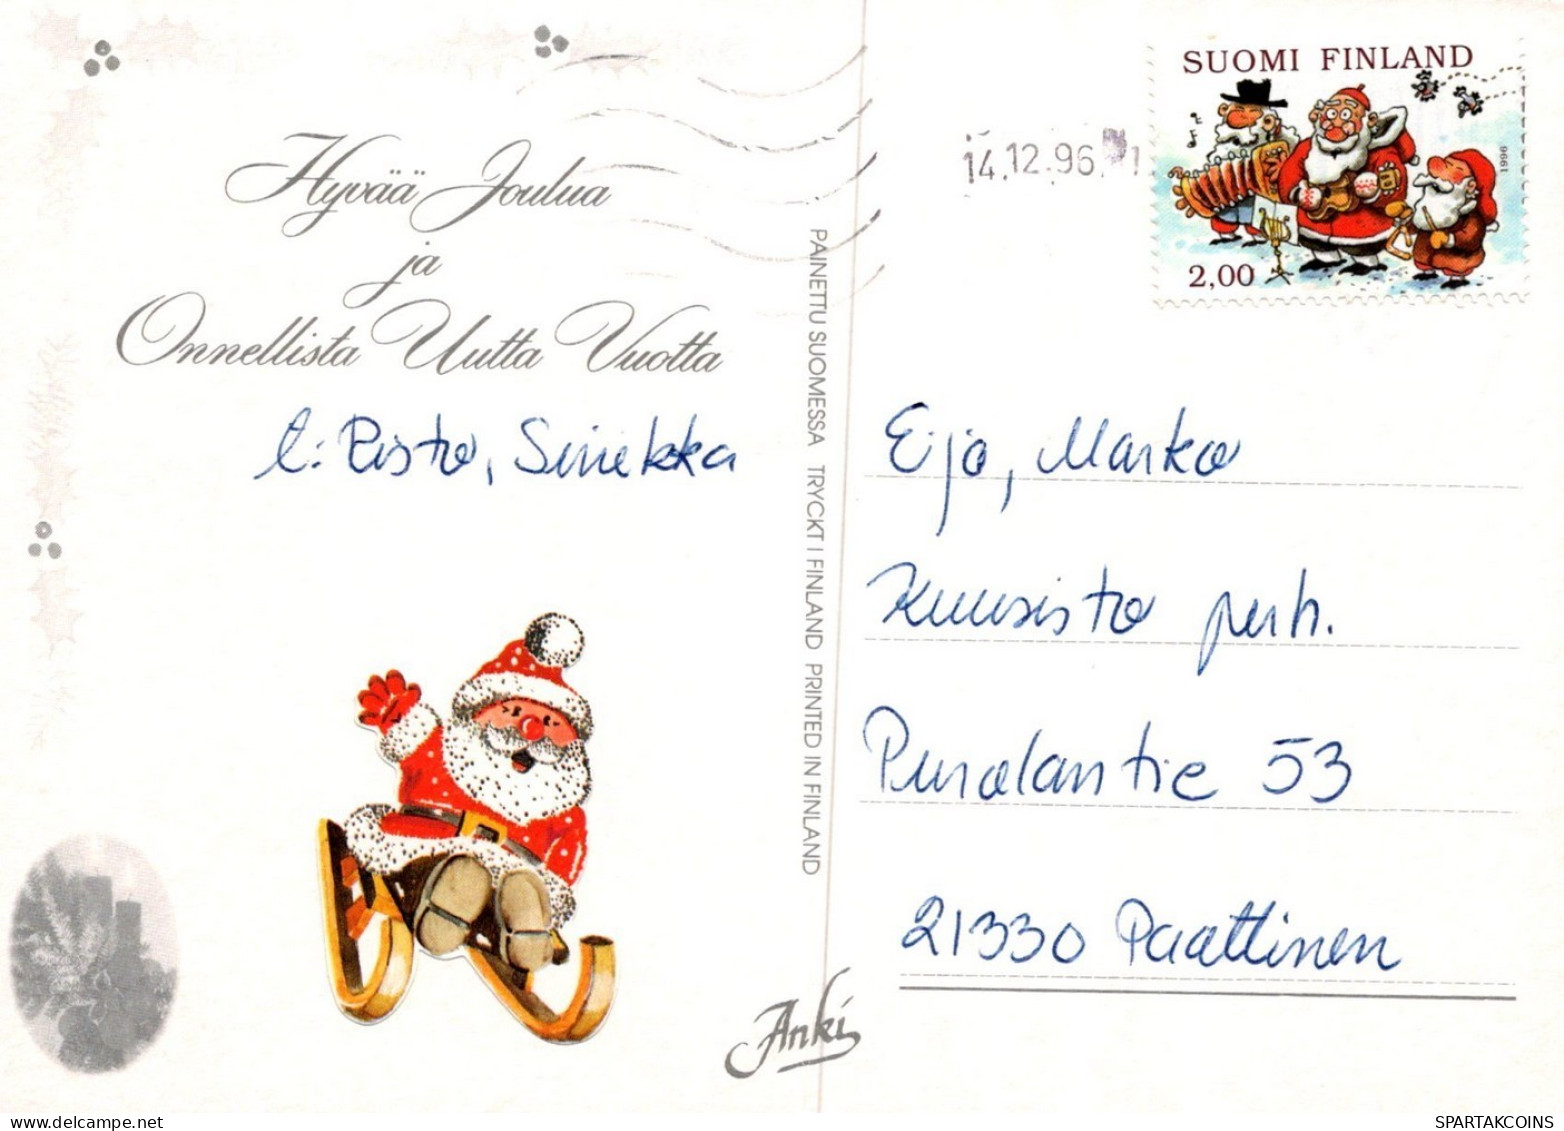 Hyvää Joulua
ja
Onnellista Uutta Vuotta
t: Risto, Sinikka
PAINETTU SUOMESSA TRYCKT I FINLAND PRINTED IN FINLAND
Anki
14.12.96
SUOMI FINLAND
1996
2,00
Eija, Marko
Kuusisto perh.
Puralantie 53
21330 Paattinen
SPARTAKCOINS